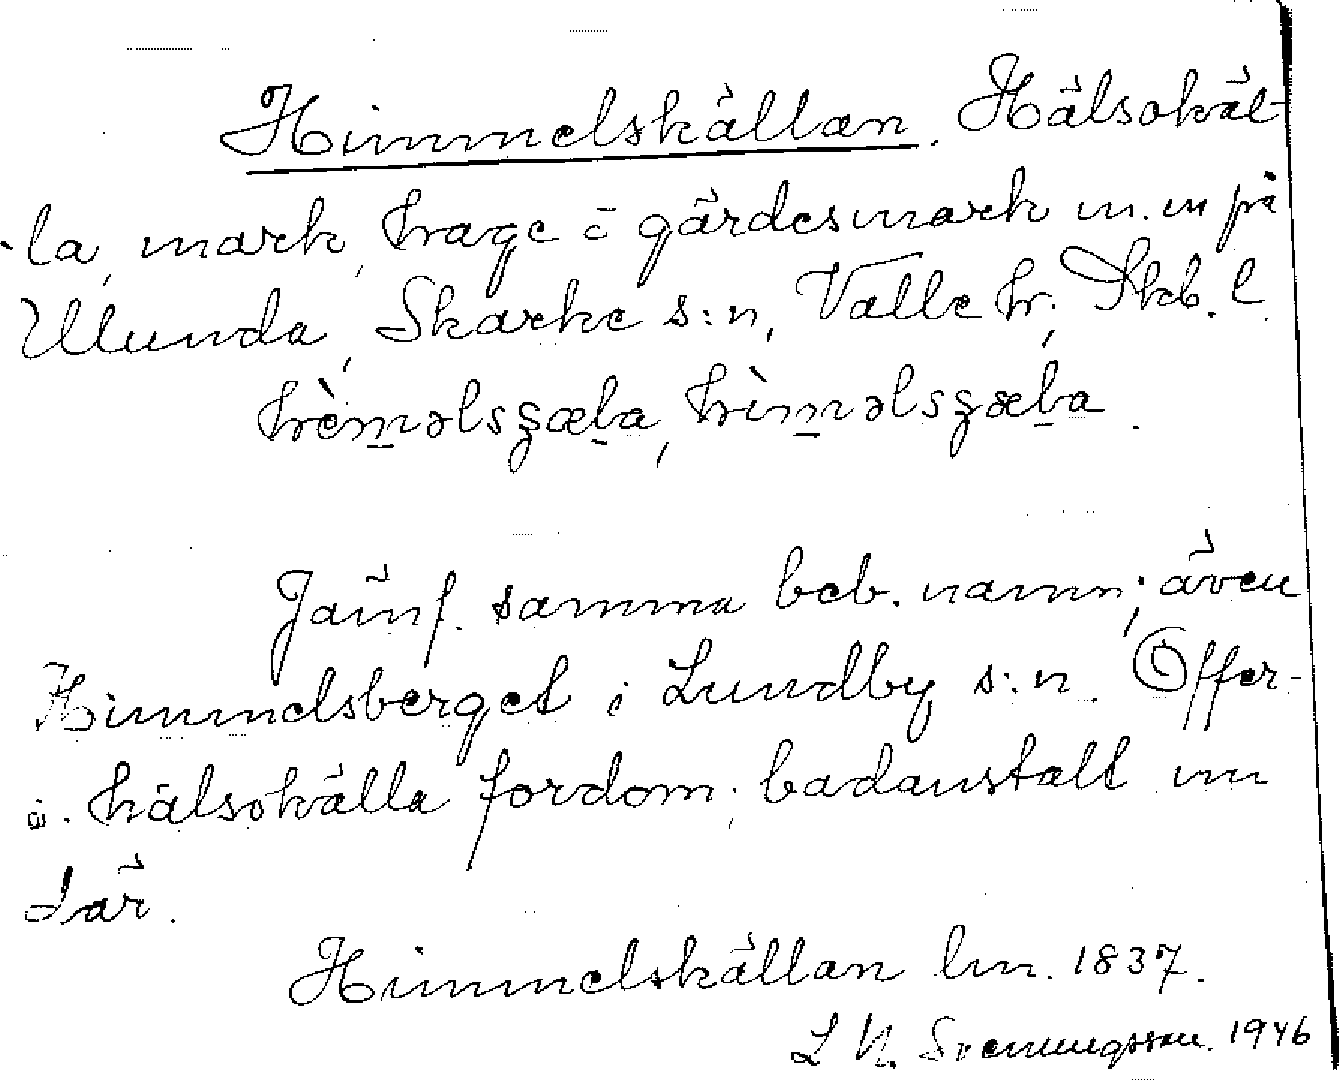 Himmelskällan. Hälsokäl-
la, mark, hage o gärdesmark m.m på
Ulunda, Skarke s:n, Valle hr, Skb. l.
hème̱lsʒæḻa, hìme̱lsʒæḻa.
Jämf. samma beb. namn; även
Himmelsberget i Lundby s:n. Offer-
o. hälsokälla fordom; badanstalt nu
där.
Himmelskällan lm. 1837.
L N. Svenungsson. 1946